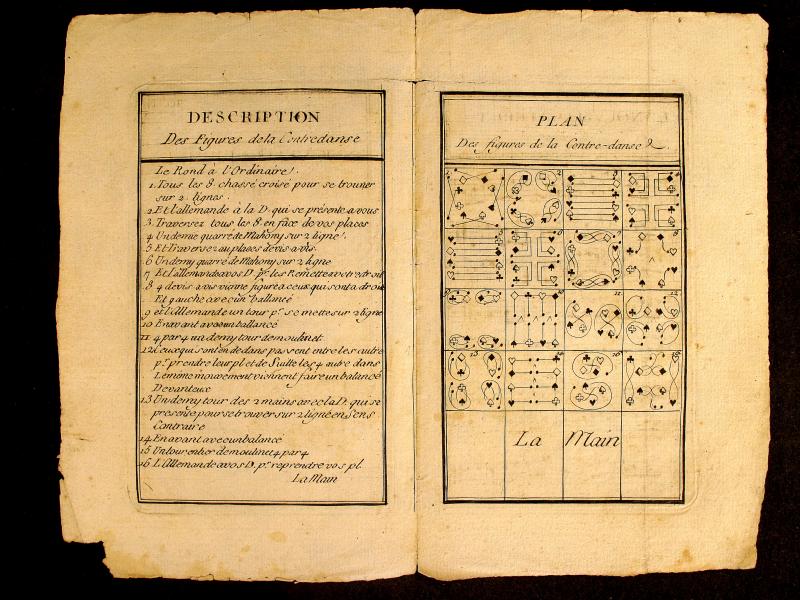 DESCRIPTION
Des Figures de la Contredanse
Le Rond à l'Ordinaire.
1. Tous les 8 chassé croisé pour se trouver
sur 2 lignes.
2. Et l'allemande à la D. qui se présente a vous
3. Traversez tous les 8 en face de vos places
4 Un demie quarré de Mahony sur 2 ligne.
5 Et Traversez au places devis a vis.
6 Un demy quarré de Mahony sur 2 ligne
7 Et l'allemande a vos D. pr. les Remettre a votre droit
8 4 devis a vis vienne figure a ceux qui sont a droit
Et gauche avec un ballancé
9 et l'Allemande un tour pr. se mettre sur 2 ligne
10 En avant avec un ballancé
11 4 par 4 un demy tour de moulinet.
12 Ceux qui sont en dedans passent entre les autre
pr. prendre leur pl. et de Suitte les 4 autre dans
Le même mouvement viennent faire un balancé
Devant eux
13 Un demy tour des 2 mains avec la D. qui se
presense pour se trouver sur 2 ligne en Sens
Contraire
14 En avant avec un balancé
15 Un tour entier de moulinet 4 par 4
16 L'Allemande a vos D. pr. reprendre vos pl.
La Main
PLAN
Des figures de la Contre-danse
La Main